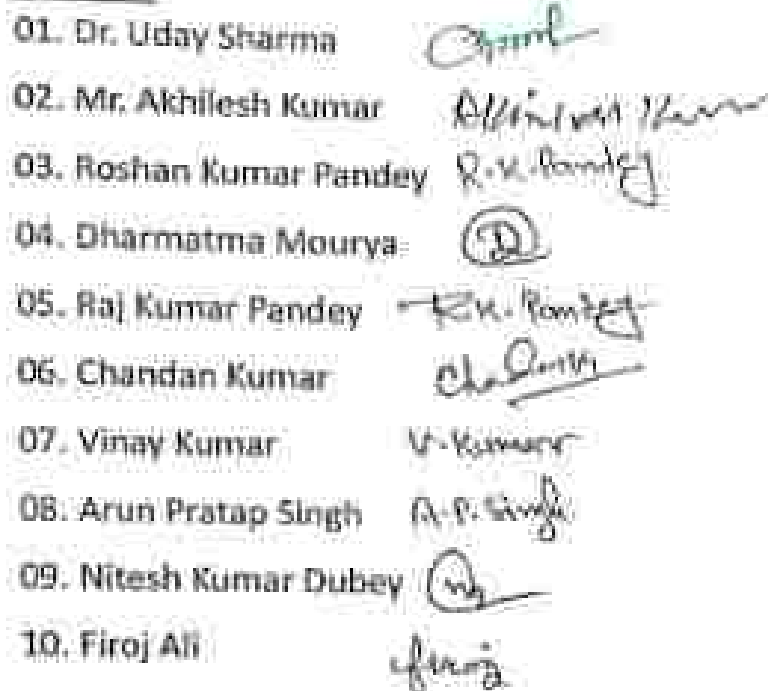 01. Dr. Uday Sharma
02. Mr. Akhilesh Kumar
03. Roshan Kumar Pandey R.K.Pandey
04. Dharmatma Mourya D
05. Raj Kumar Pandey RK.Pandey
06. Chandan Kumar
07. Vinay Kumar V.Kumar
08. Arun Pratap Singh A.P.Singh
09. Nitesh Kumar Dubey
10. Firoj Ali firoj